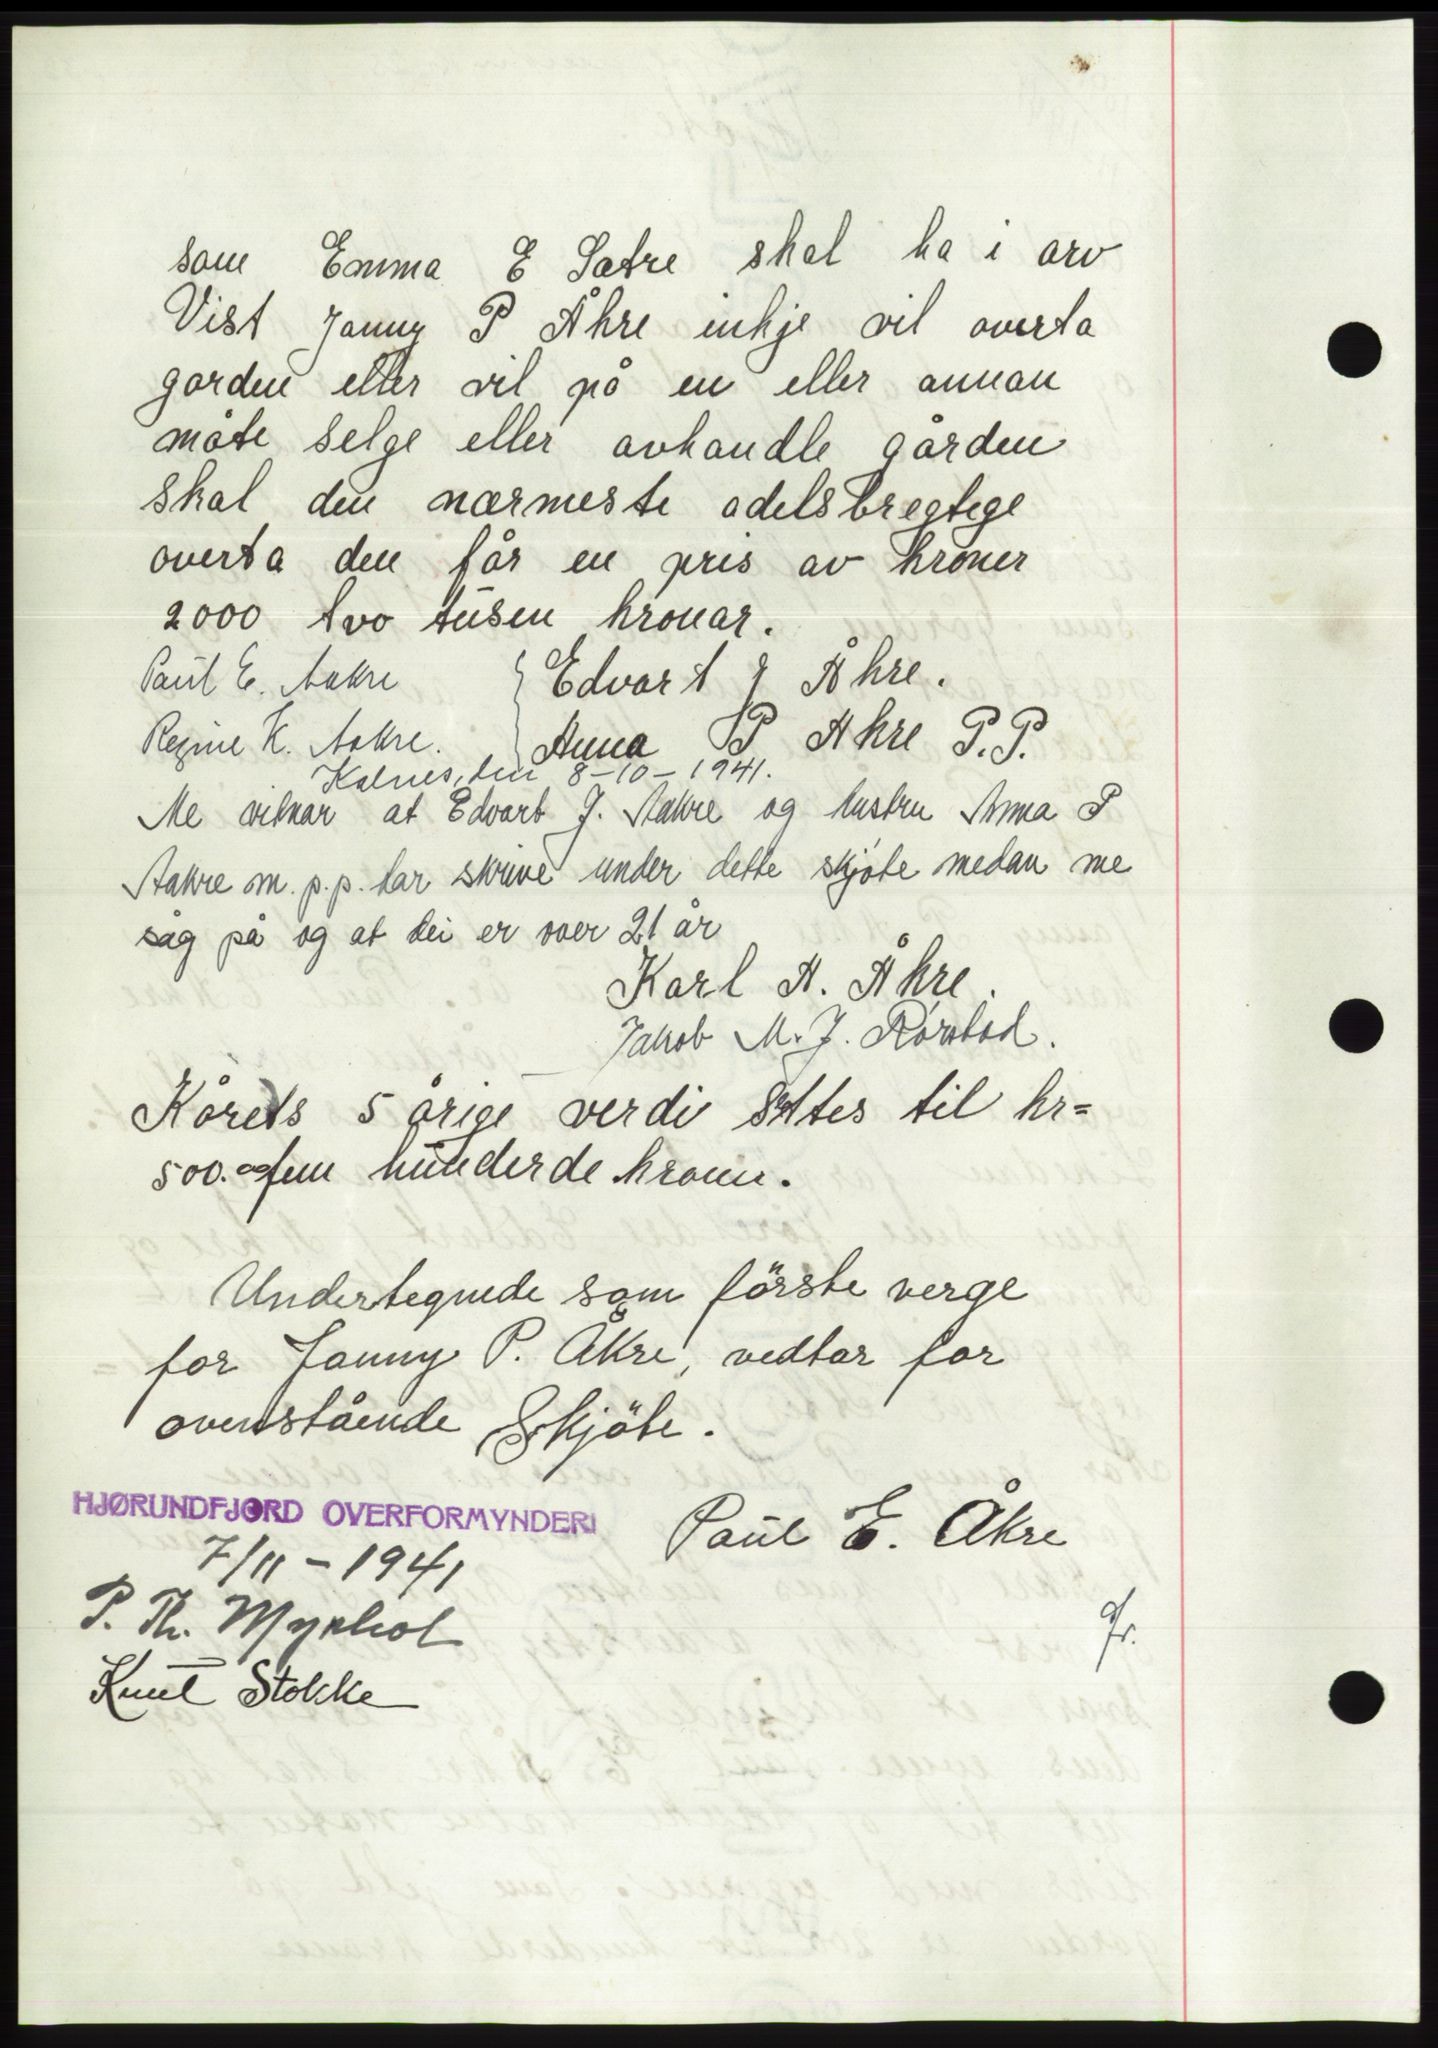 som Emma E Sætre skal ha i arv
Vist Janny P Åkre inkje vil overta
garden eller vil på en eller annan
måte selge eller avhandle gården
skal den nærmeste odelsbregtege
overta den får en pris av kroner
2000 tvo tusen kronar.
Paul E. Aakre Edvart J Åkre.
Regine K. Aakre. Anna P Akre P.P.
Kalnes, den 8-10-1941.
Me vitnar at Edvart J. Aakre og hustru Anna P
Aakre m.p.p. har skrive under dette skjøte medan me
såg på og at dei er over 21 år
Karl A. Åkre.
Jakob M. J. Rørstad.
Kårets 5 årige verdi settes til kr=
500.00 fem hunderde kroner.
Undertegnede som förste verge
for Janny P. Åkre, vedtar for
ovenstående Skjöte.
HJØRUNDFJORD OVERFORMYNDERI
7/11-1941
Paul E. Åkre
P. Th. Myrhol
Knut Stokke